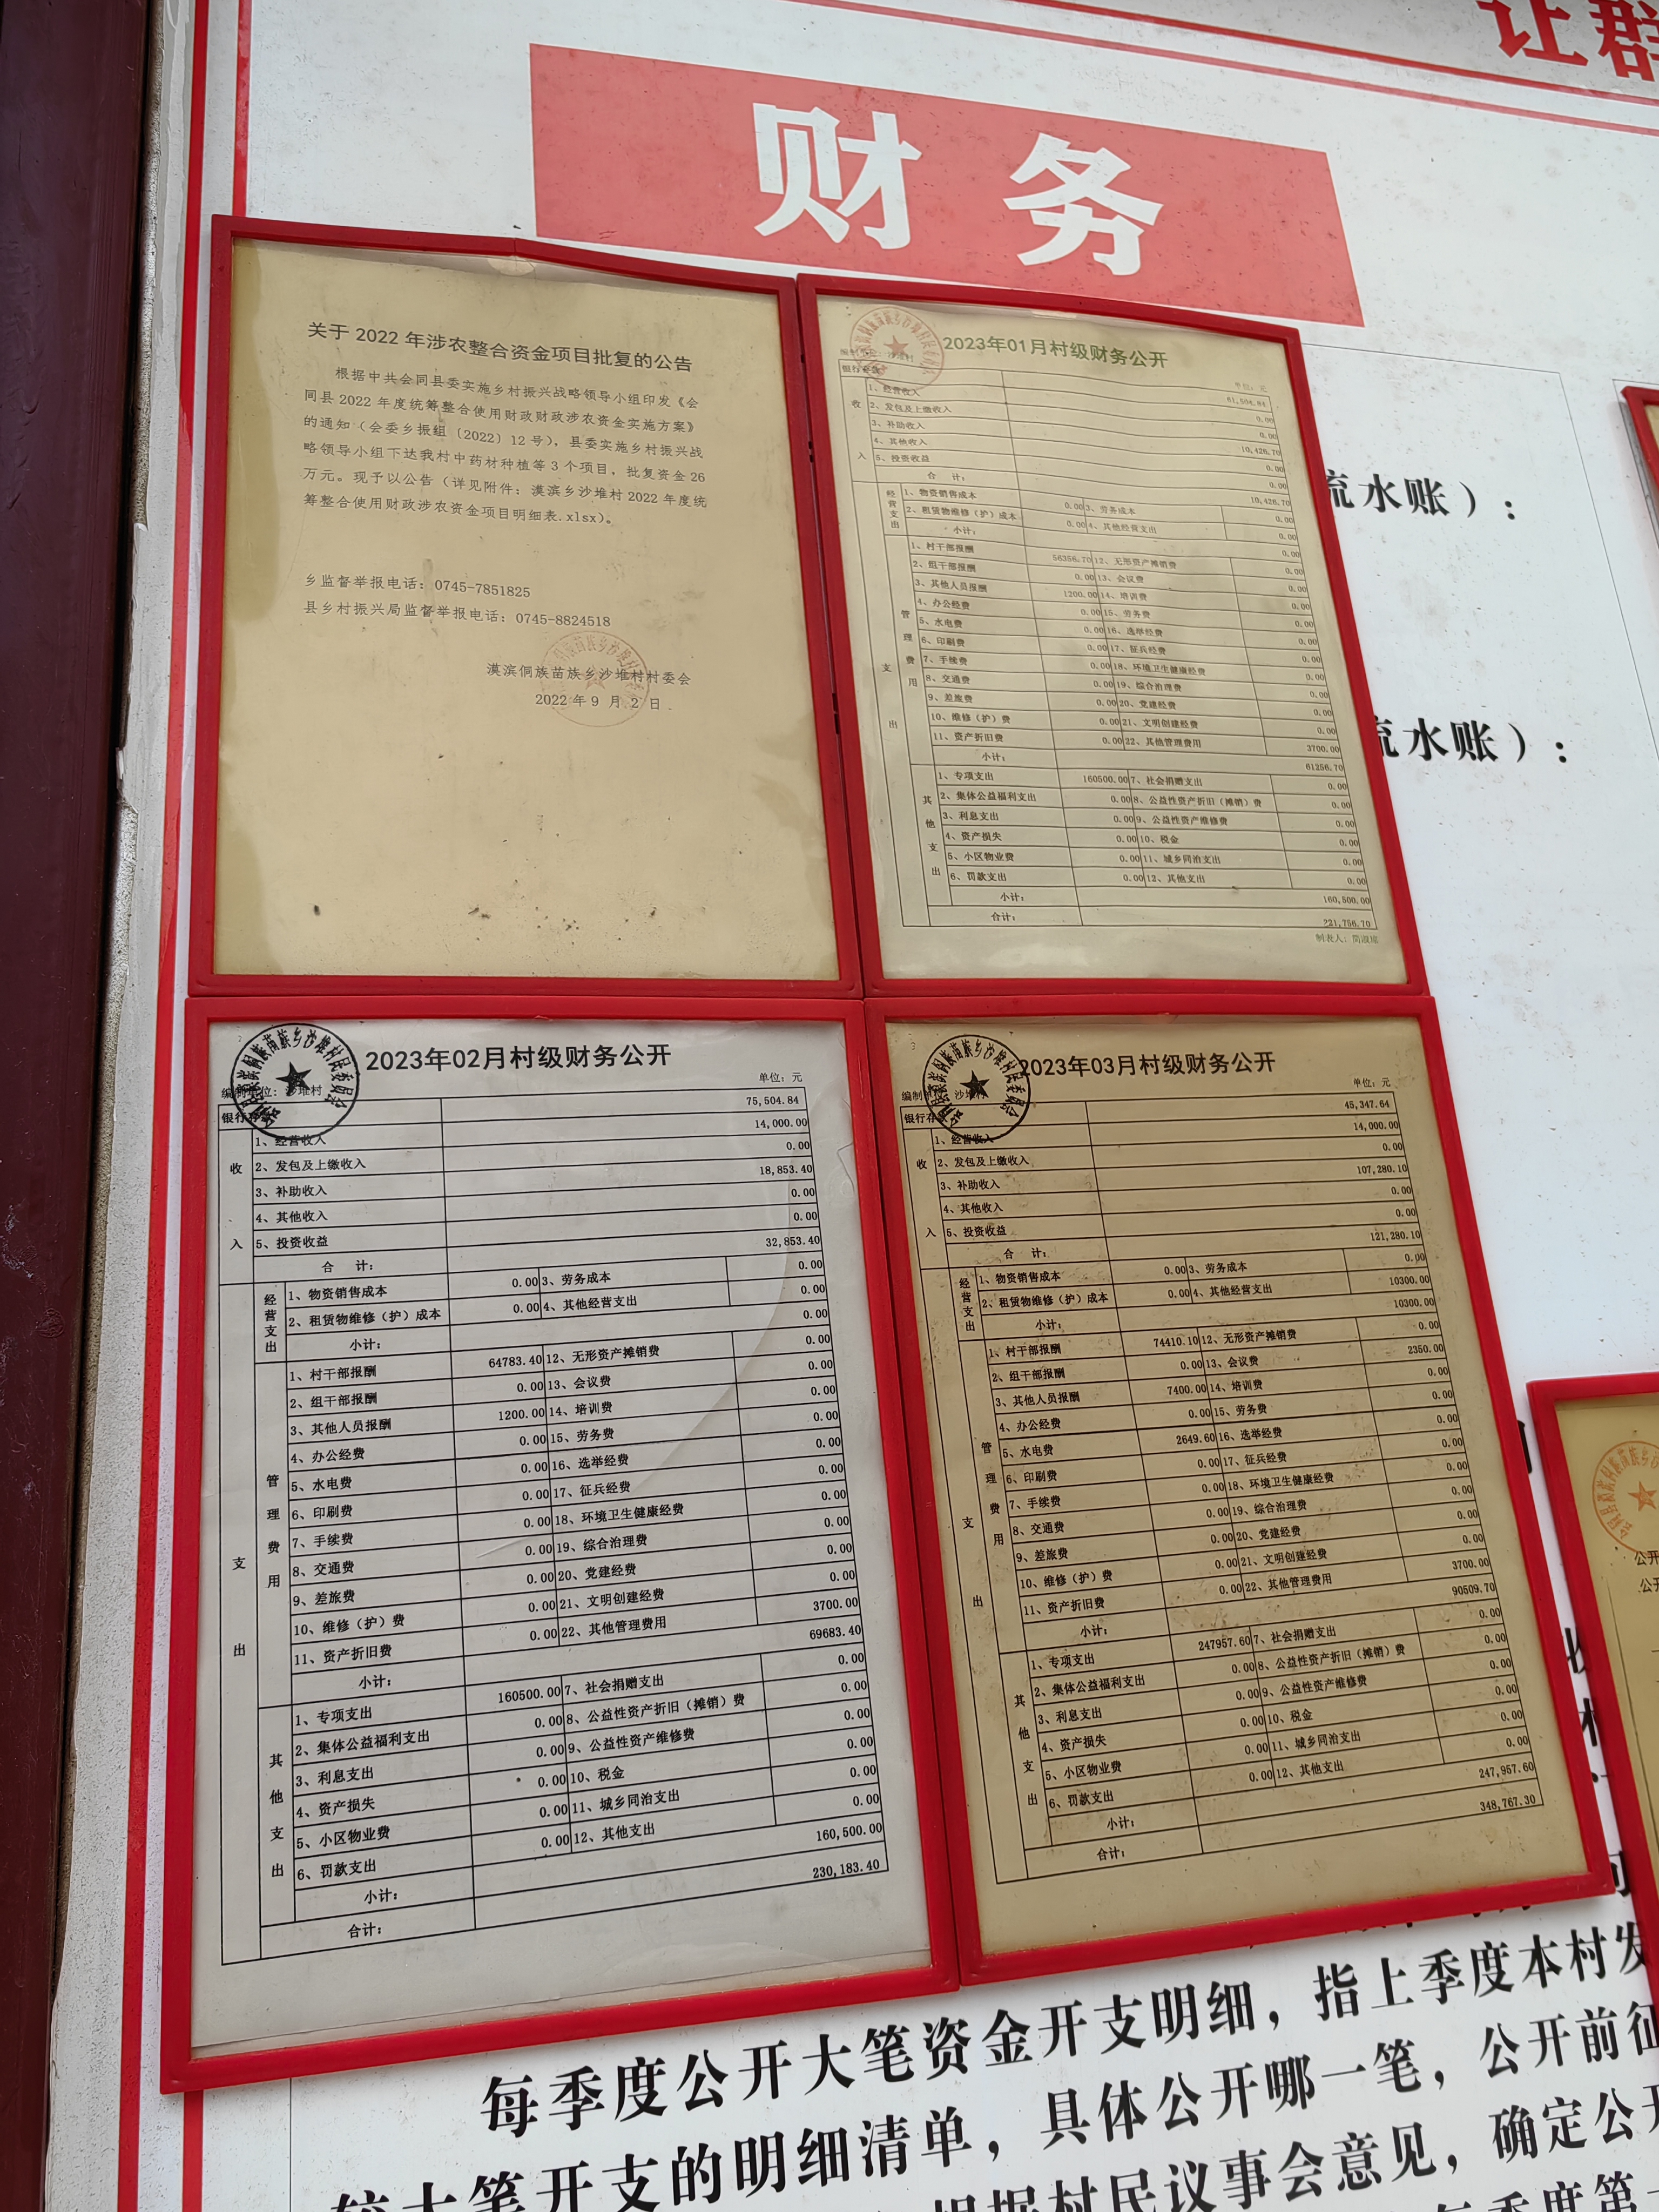 让群
财务
关于 2022 年涉农整合资金项目批复的公告
根据中共会同县委实施乡村振兴战略领导小组印发《会
同县 2022 年度统筹整合使用财政财政涉农资金实施方案》
的通知（会委乡振组〔2022〕12 号），县委实施乡村振兴战
略领导小组下达我村中药材种植等 3 个项目，批复资金 26
万元。现予以公告（详见附件：漠滨乡沙堆村 2022 年度统
筹整合使用财政涉农资金项目明细表.xlsx）。
乡监督举报电话：0745-7851825
县乡村振兴局监督举报电话：0745-8824518
漠滨侗族苗族乡沙堆村村委会
2022 年 9 月 2 日
2023年01月村级财务公开
编制单位：沙堆村 单位：元
61,504.84
1、经营收入 0.00
2、发包及上缴收入 0.00
3、补助收入 10,426.70
4、其他收入 0.00
5、投资收益 0.00
收入
合 计： 10,426.70
经营支出
1、物资销售成本 0.00 3、劳务成本 0.00
2、租赁物维修（护）成本 0.00 4、其他经营支出 0.00
小计： 0.00
管理费用
1、村干部报酬 56356.70 12、无形资产摊销费 0.00
2、组干部报酬 0.00 13、会议费 0.00
3、其他人员报酬 1200.00 14、培训费 0.00
4、办公经费 0.00 15、劳务费 0.00
5、水电费 0.00 16、选举经费 0.00
6、印刷费 0.00 17、征兵经费 0.00
7、手续费 0.00 18、环境卫生健康经费 0.00
8、交通费 0.00 19、综合治理费 0.00
9、差旅费 0.00 20、党建经费 0.00
10、维修（护）费 0.00 21、文明创建经费 0.00
11、资产折旧费 0.00 22、其他管理费用 3700.00
小计： 61256.70
支出
其他支出
1、专项支出 160500.00 7、社会捐赠支出 0.00
2、集体公益福利支出 0.00 8、公益性资产折旧（摊销）费 0.00
3、利息支出 0.00 9、公益性资产维修费 0.00
4、资产损失 0.00 10、税金 0.00
5、小区物业费 0.00 11、城乡同治支出 0.00
6、罚款支出 0.00 12、其他支出 0.00
小计： 160,500.00
合计： 221,756.70
制表人：
流水账）：
流水账）：
2023年02月村级财务公开
编制单位：沙堆村 单位：元
银行存 75,504.84
1、经营收入 14,000.00
2、发包及上缴收入 0.00
3、补助收入 18,853.40
4、其他收入 0.00
5、投资收益 0.00
收入
合 计： 32,853.40
经营支出
1、物资销售成本 0.00 3、劳务成本 0.00
2、租赁物维修（护）成本 0.00 4、其他经营支出 0.00
小计： 0.00
管理费用
1、村干部报酬 64783.40 12、无形资产摊销费 0.00
2、组干部报酬 0.00 13、会议费 0.00
3、其他人员报酬 1200.00 14、培训费 0.00
4、办公经费 0.00 15、劳务费 0.00
5、水电费 0.00 16、选举经费 0.00
6、印刷费 0.00 17、征兵经费 0.00
7、手续费 0.00 18、环境卫生健康经费 0.00
8、交通费 0.00 19、综合治理费 0.00
9、差旅费 0.00 20、党建经费 0.00
10、维修（护）费 0.00 21、文明创建经费 0.00
11、资产折旧费 0.00 22、其他管理费用 3700.00
小计： 69683.40
支出
其他支出
1、专项支出 160500.00 7、社会捐赠支出 0.00
2、集体公益福利支出 0.00 8、公益性资产折旧（摊销）费 0.00
3、利息支出 0.00 9、公益性资产维修费 0.00
4、资产损失 0.00 10、税金 0.00
5、小区物业费 0.00 11、城乡同治支出 0.00
6、罚款支出 0.00 12、其他支出 0.00
小计： 160,500.00
合计： 230,183.40
2023年03月村级财务公开
编制单 沙堆村 单位：元
银行存 45,347.64
1、经营收入 14,000.00
2、发包及上缴收入 0.00
3、补助收入 107,280.10
4、其他收入 0.00
5、投资收益 0.00
收入
合 计： 121,280.10
经营支出
1、物资销售成本 0.00 3、劳务成本 0.00
2、租赁物维修（护）成本 0.00 4、其他经营支出 10300.00
小计： 10300.00
管理费用
1、村干部报酬 74410.10 12、无形资产摊销费 0.00
2、组干部报酬 0.00 13、会议费 2350.00
3、其他人员报酬 7400.00 14、培训费 0.00
4、办公经费 0.00 15、劳务费 0.00
5、水电费 2649.60 16、选举经费 0.00
6、印刷费 0.00 17、征兵经费 0.00
7、手续费 0.00 18、环境卫生健康经费 0.00
8、交通费 0.00 19、综合治理费 0.00
9、差旅费 0.00 20、党建经费 0.00
10、维修（护）费 0.00 21、文明创建经费 0.00
11、资产折旧费 0.00 22、其他管理费用 3700.00
小计： 90509.70
支出
其他支出
1、专项支出 247957.60 7、社会捐赠支出 0.00
2、集体公益福利支出 0.00 8、公益性资产折旧（摊销）费 0.00
3、利息支出 0.00 9、公益性资产维修费 0.00
4、资产损失 0.00 10、税金 0.00
5、小区物业费 0.00 11、城乡同治支出 0.00
6、罚款支出 0.00 12、其他支出 0.00
小计： 247,957.60
合计： 348,767.30
公开
公开
每季度公开大笔资金开支明细，指上季度本村发
较大笔开支的明细清单，具体公开哪一笔，公开前征
根据村民议事会意见，确定公开
每季度第一